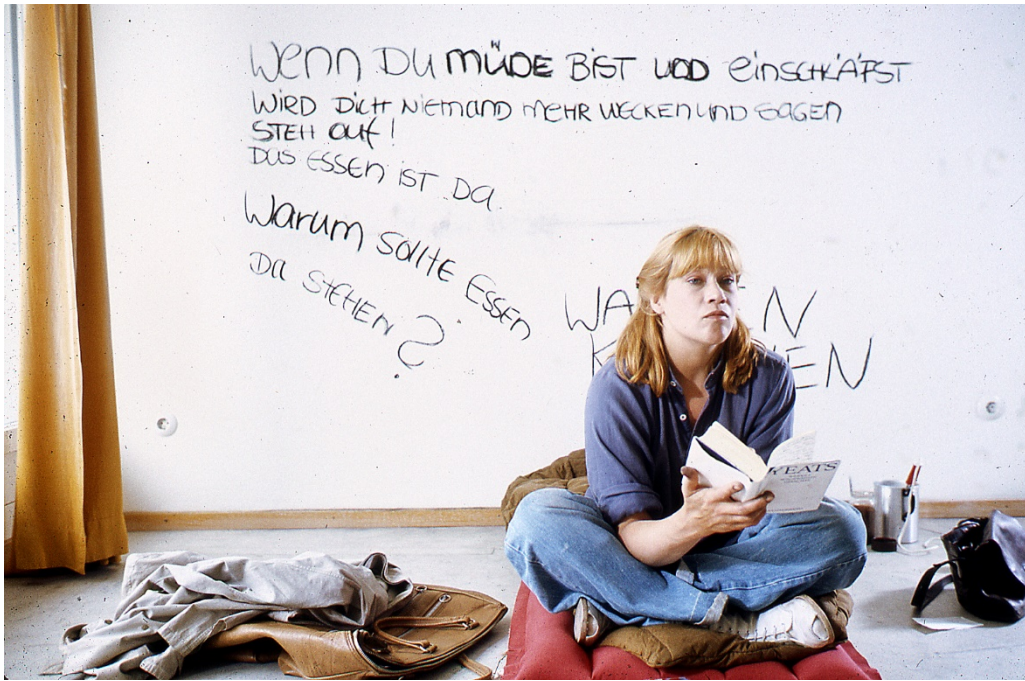 Wenn DU MÜDE BiST UND einSCHLÄFST
WiRD DiCH NiemanD meHR WECKEN UND SAGEN
STEH auf!
Das ESSEN iST Da.
Warum sollte ESSEN
Da STEHEN?
YEATS